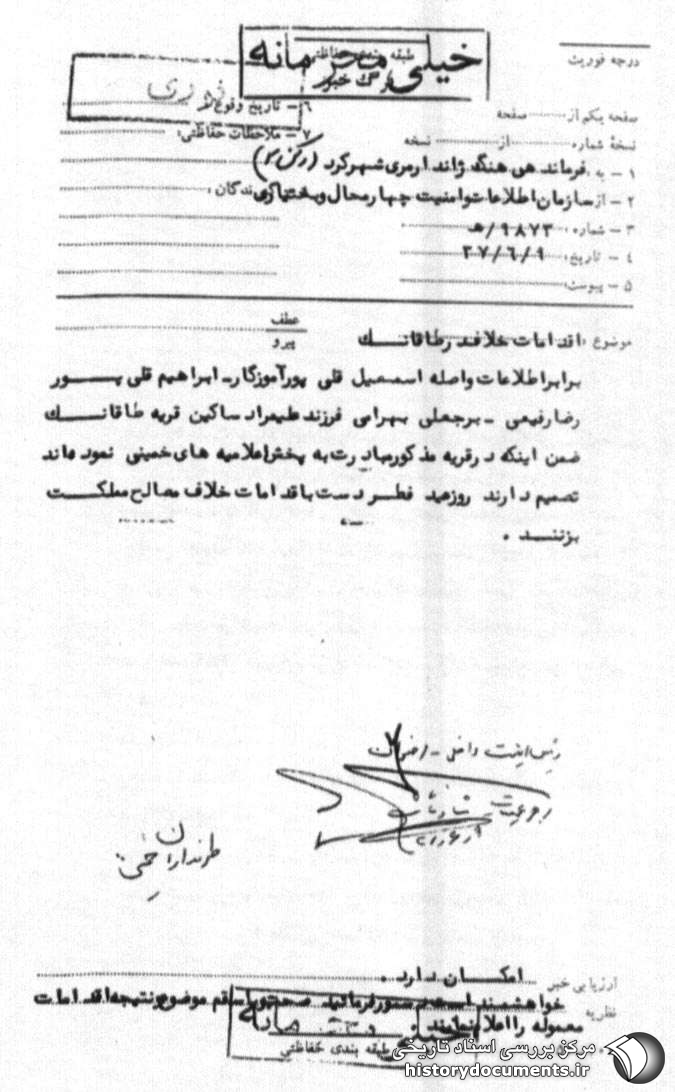 درجه فوریت
طبقه بندی حفاظتی
خیلی محرمانه
برگ خبر
فوری
صفحه یکم از صفحه
۶ - تاریخ وقوع
نسخهٔ شماره از نسخه
۷ - ملاحظات حفاظتی:
۱ - به: فرماندهی هنگ ژاندارمری شهرکرد (رکن ۲)
۲ - از: سازمان اطلاعات و امنیت چهارمحال و بختیاری
۳ - شماره: ۹۸۷۳/ه
۴ - تاریخ: ۳۷/۶/۹
۵ - پیوست:
موضوع: اقدامات خلاف در طاقانک
عطف
پیرو
برابر اطلاعات واصله اسمعیل قلی پور آموزگار - ابراهیم قلی پور
رضا رفیعی - برجعلی بهرامی فرزند طهمراد ساکین قریه طاقانک
ضمن اینکه در قریه مذکور مبادرت به پخش اعلامیه های خمینی نموده اند
تصمیم دارند روز عید فطر دست باقدامات خلاف مصالح مملکت
بزنند .
رئیس امنیت داخلی -
طرفداران خمینی
ارزیابی خبر امکان دارد .
نظریه خواهشمند است دستور فرمائید صحت و یا سقم موضوع و نتیجه اقدامات
معموله را اعلام نمایند .
طبقه بندی حفاظتی
مرکز بررسی اسناد تاریخی
historydocuments.ir